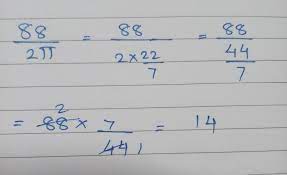 88/2π = 88/(2×22/7) = 88/(44/7)
= 88 2 × 7/44 1 = 14